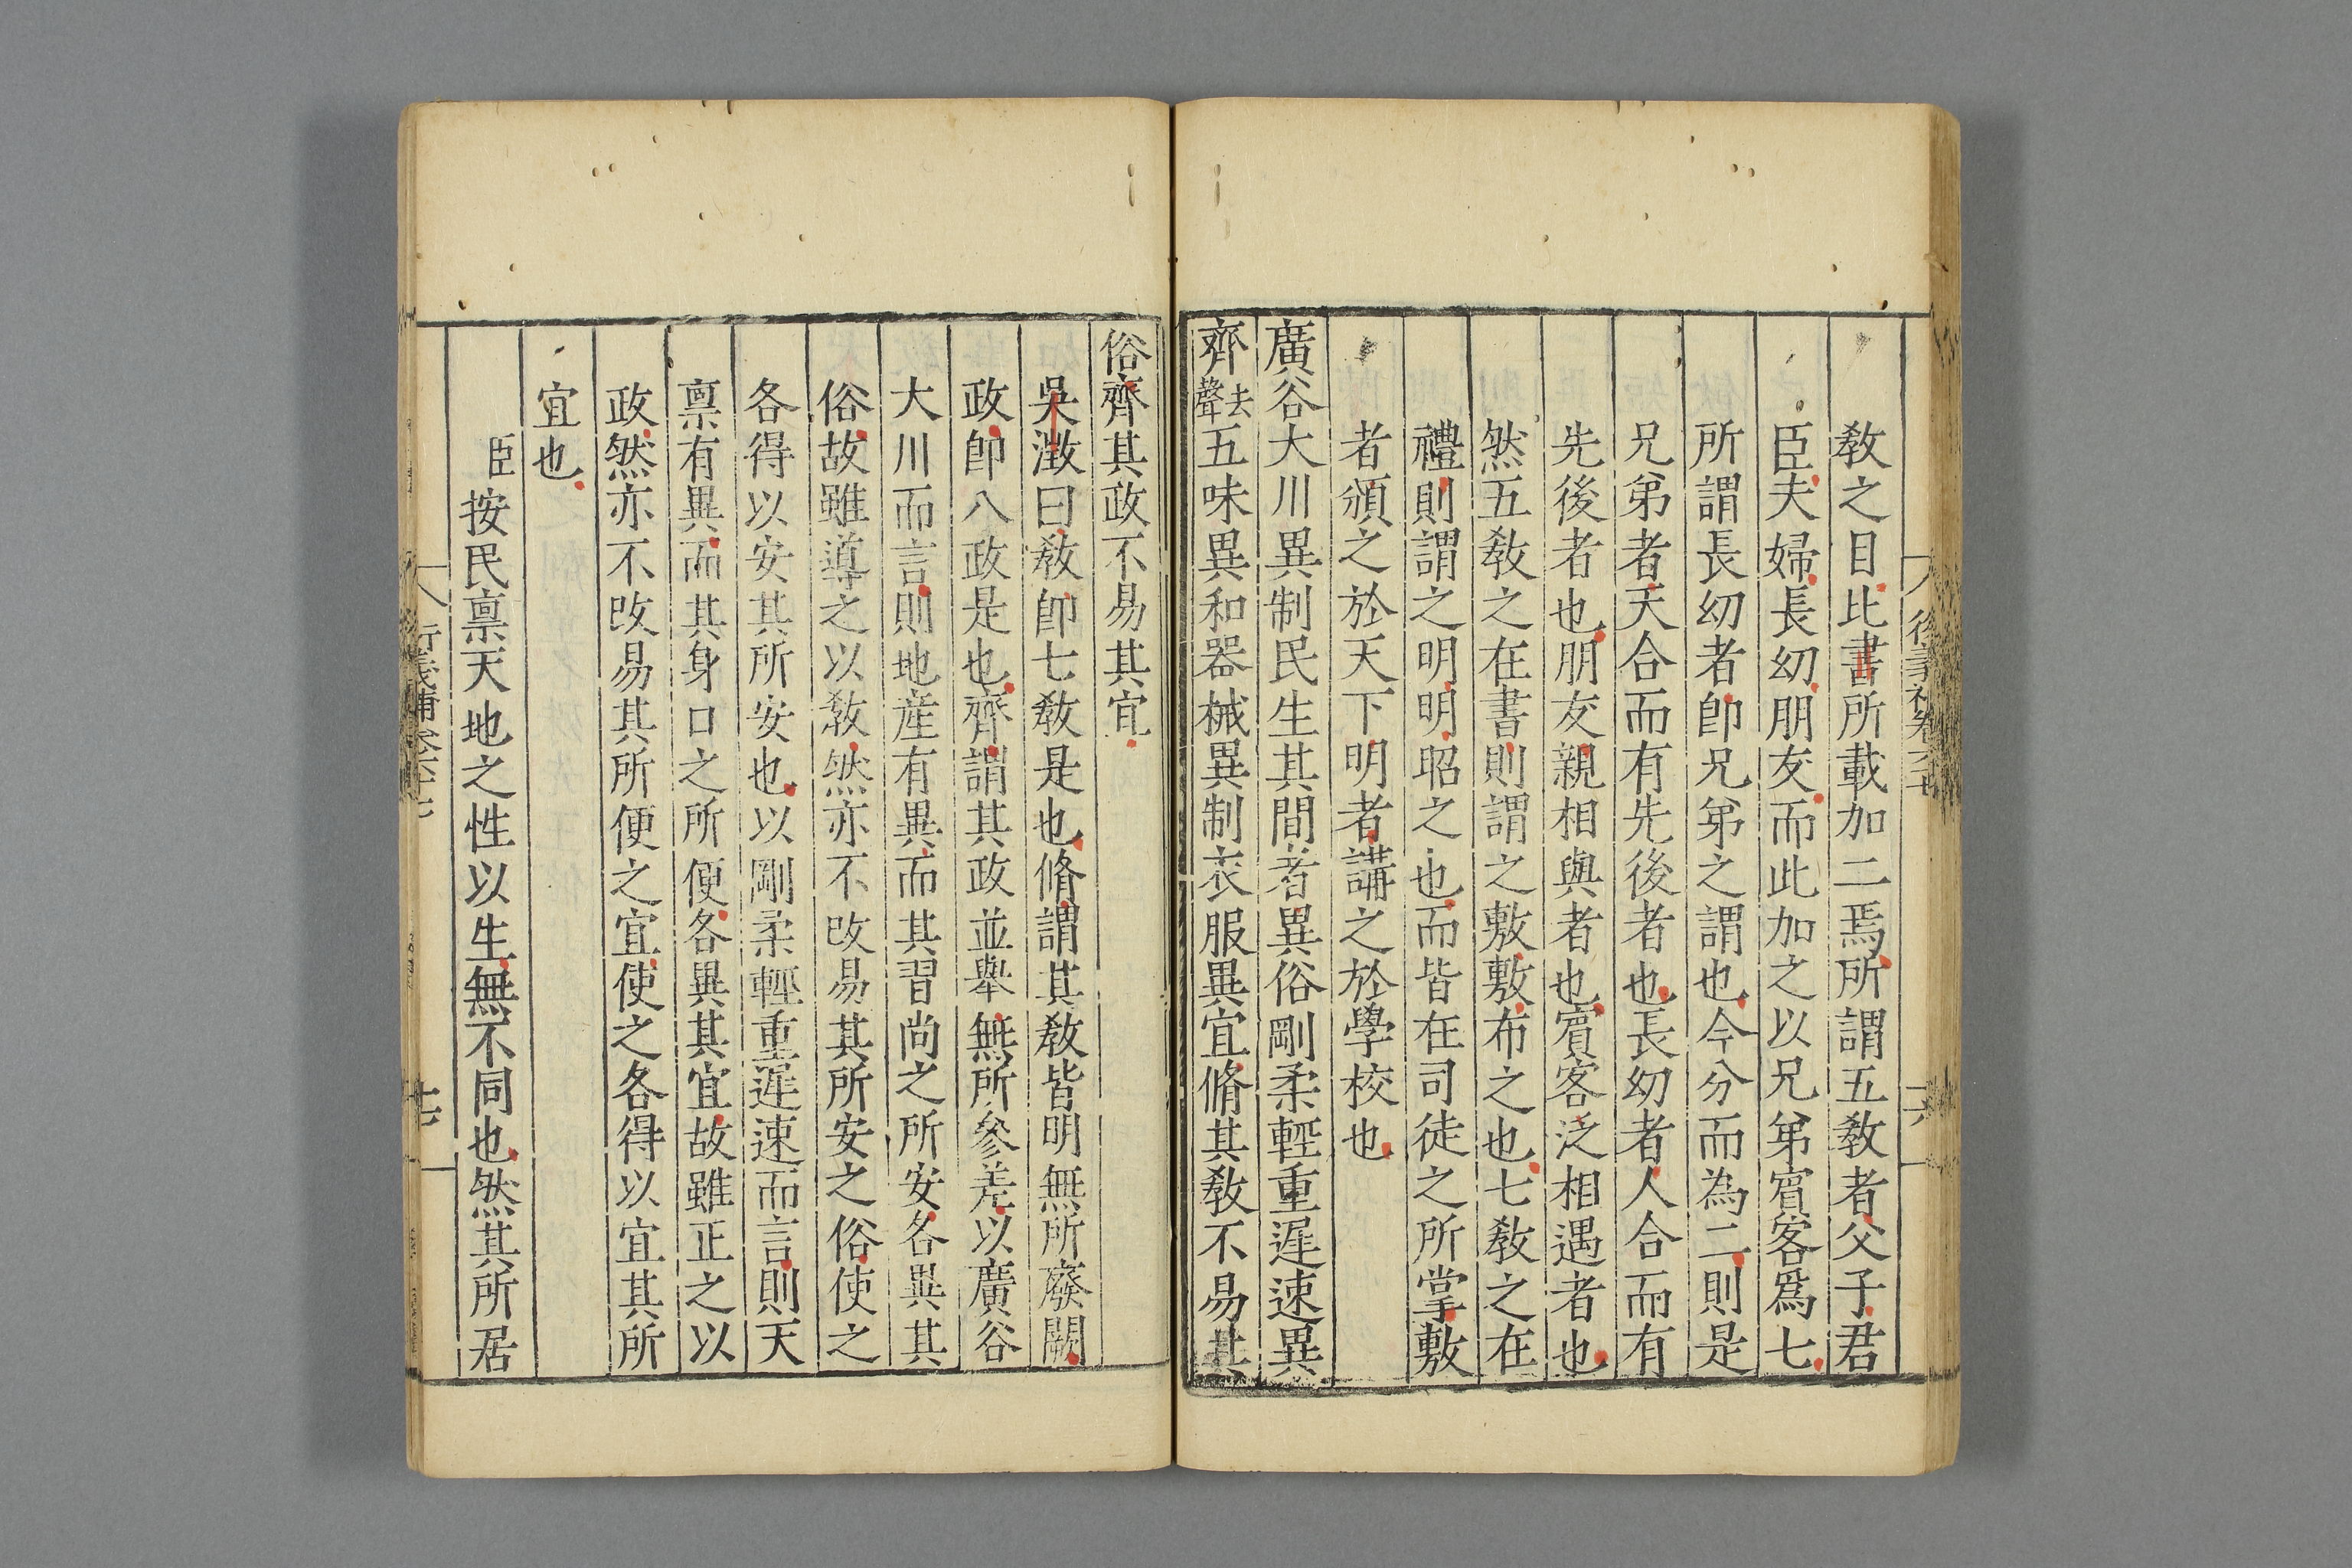 教之目比書所載加二焉所謂五教者父子君
臣夫婦長幼朋友而此加之以兄弟賓客爲七
所謂長幼者卽兄弟之謂也今分而為二則是
兄弟者天合而有先後者也長幼者人合而有
先後者也朋友親相與者也賓客泛相遇者也
然五教之在書則謂之敷敷布之也七教之在
禮則謂之明明昭之也而皆在司徒之所掌敷
者頒之於天下明者講之於學校也
廣谷大川異制民生其間者異俗剛柔輕重遲速異
齊去聲五味異和器械異制衣服異宜脩其教不易其
俗齊其政不易其宜
吳澂曰教卽七教是也脩謂其教皆明無所廢闕
政卽八政是也齊謂其政並舉無所參差以廣谷
大川而言則地産有異而其習尚之所安各異其
俗故雖導之以教然亦不改易其所安之俗使之
各得以安其所安也以剛柔輕重遲速而言則天
禀有異而其身口之所便各異其宜故雖正之以
政然亦不改易其所便之宜使之各得以宜其所
宜也
臣按民禀天地之性以生無不同也然其所居